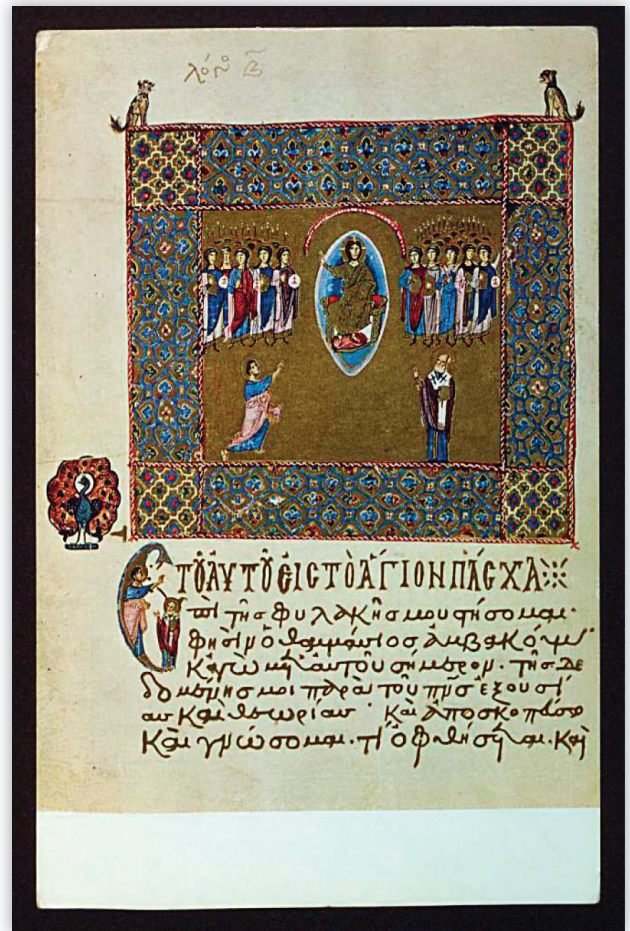 λόγος Β
ΤΟΥ ΑΥΤΟΥ ΕΙΣ ΤΟ ΑΓΙΟΝ ΠΑΣΧΑ
Ἐπὶ τῆς φυλακῆς μου στήσομαι·
φησὶν ὁ θαυμάσιος ἀμβακούμ·
Κἀγὼ μετ' αὐτοῦ σήμερον· τῆς δε
δομένης μοι παρὰ τοῦ πνς ἐξουσί
ας καὶ θεωρίας· Καὶ ἀποσκοπεύσω
Καὶ γνώσομαι· τί ὀφθήσεται· Καὶ